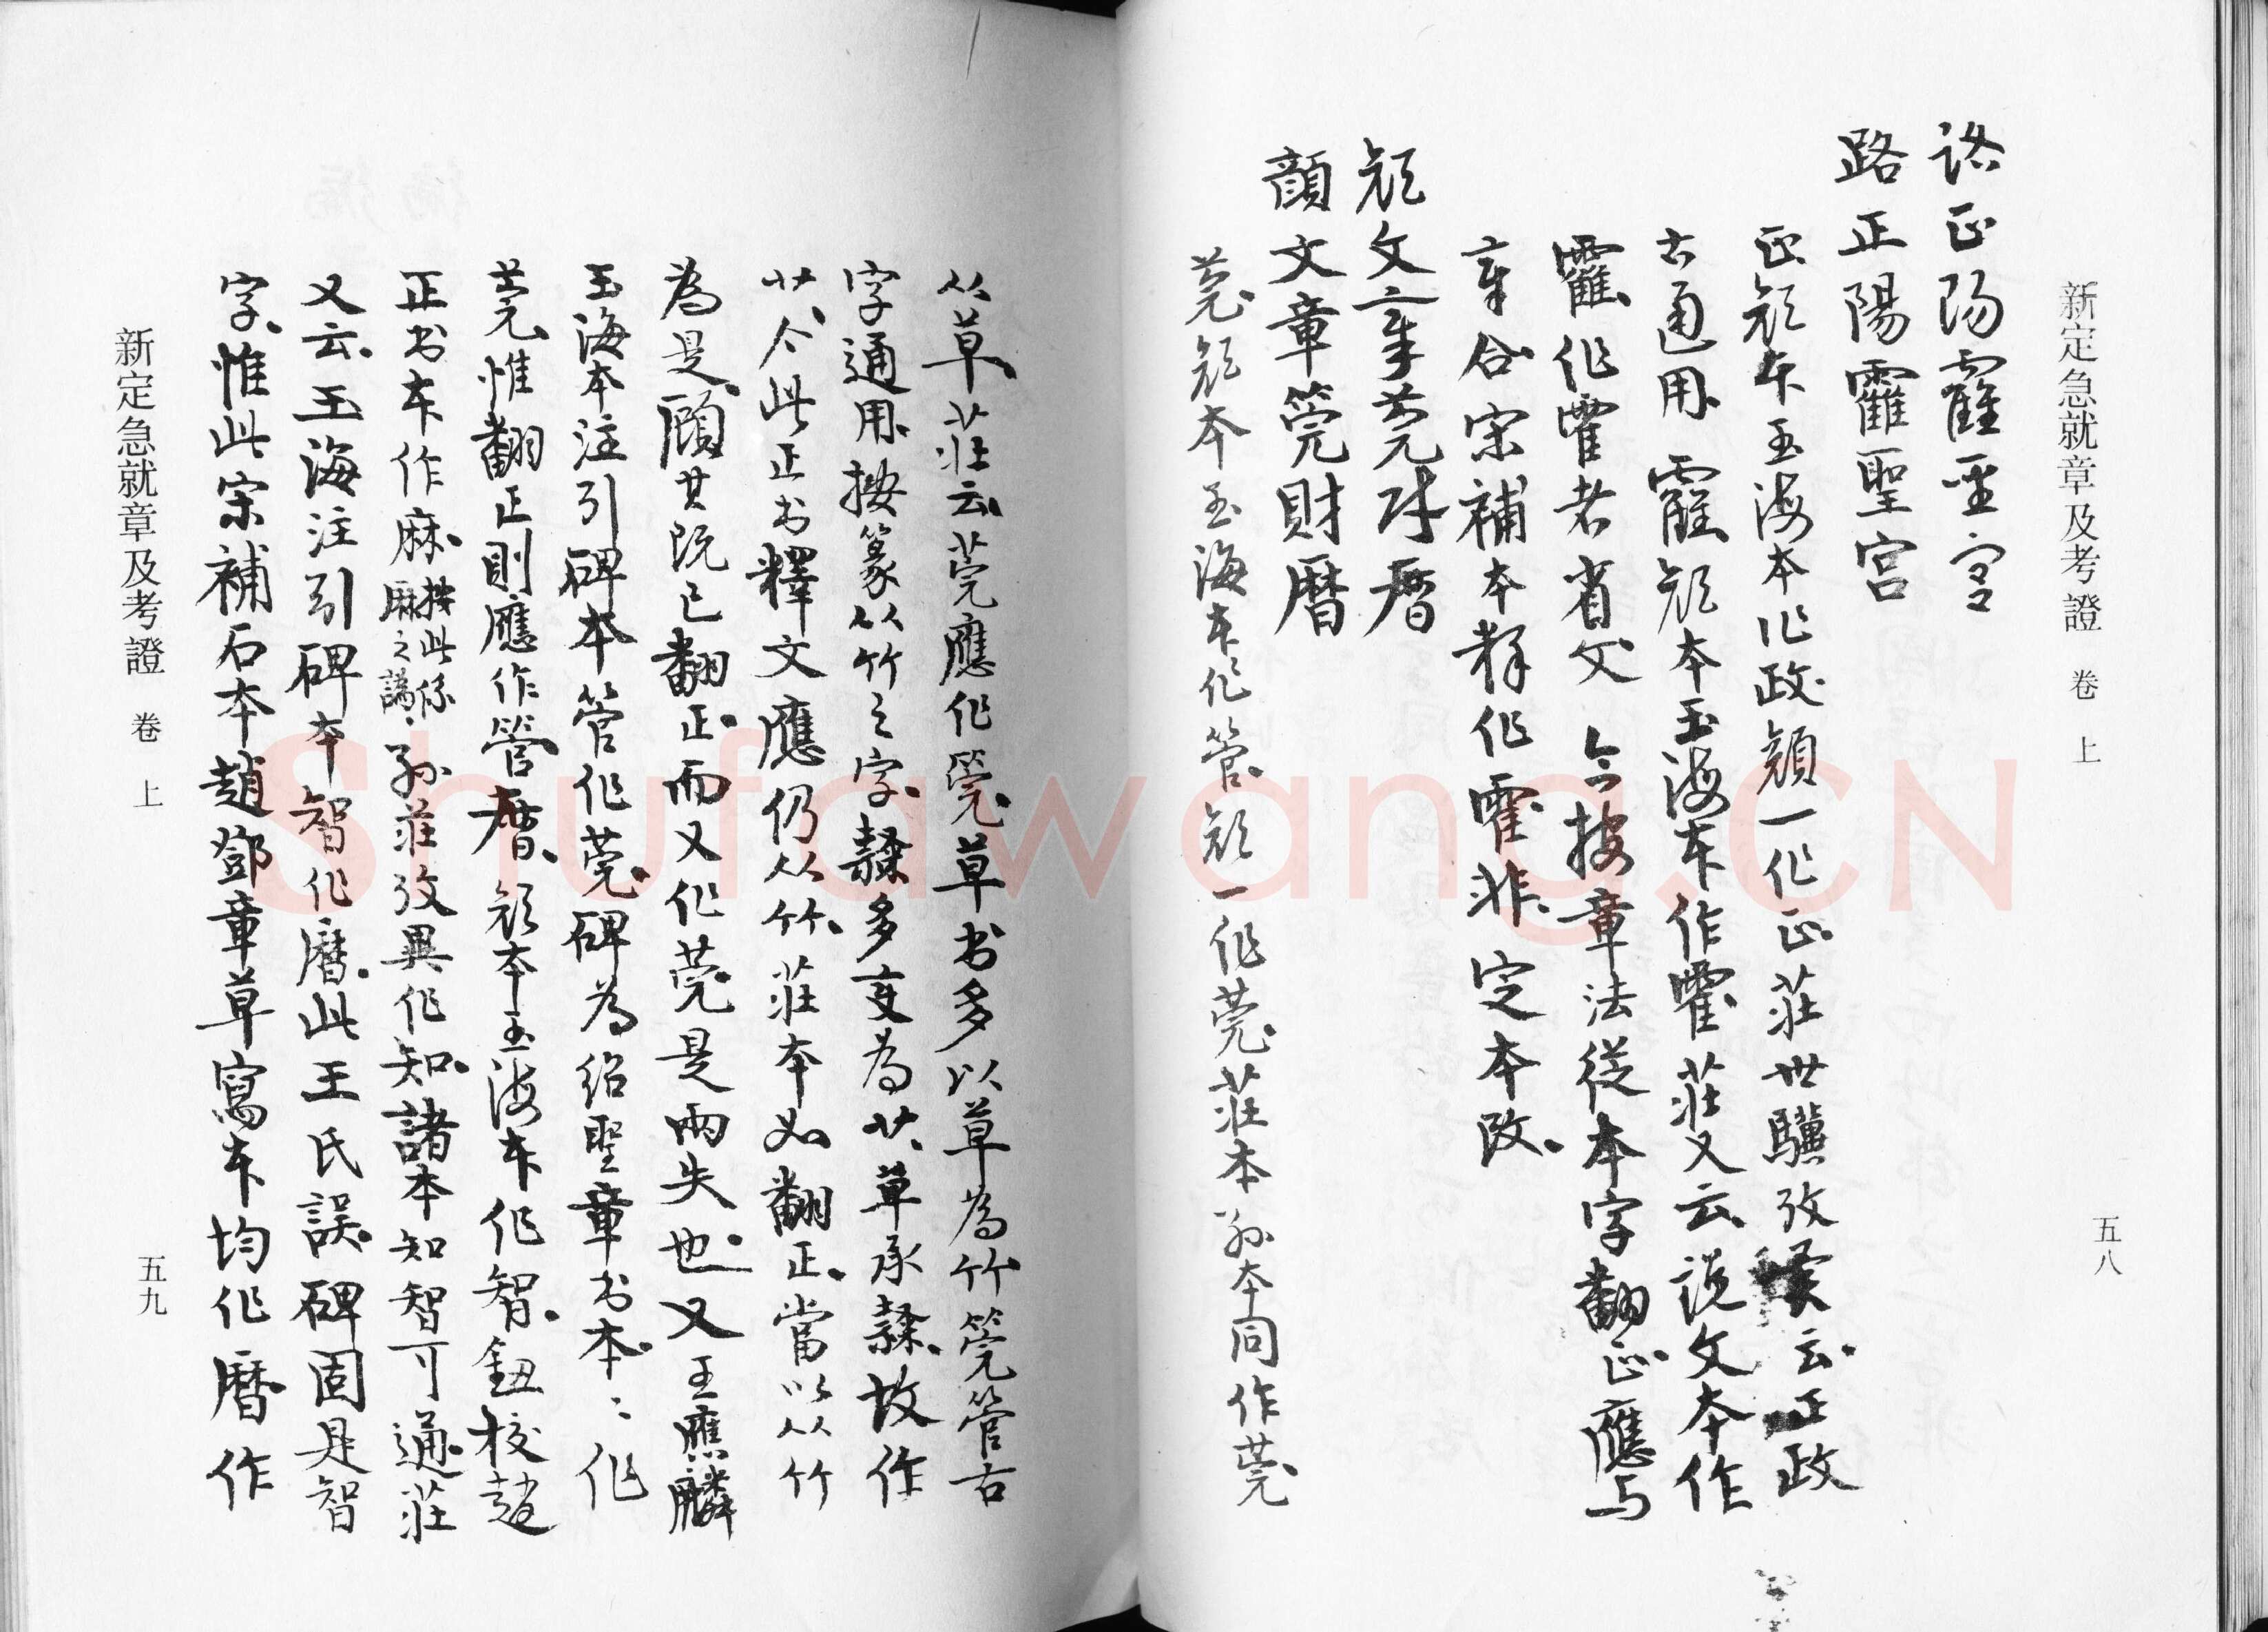 新定急就章及考證　卷上
五八
路正陽靃聖宮
路正陽靃聖宮
正顏本玉海本作政顏一作正莊世驥攷異云正政
古通用靃顏本玉海本作霍莊又云說文本作
靃作霍者省文今按章法從本字翻正應与
章合宋補本釋作霍非定本改
顏文章莞財曆
顏文章筦財曆
莞顏本玉海本作管顏一作莞莊本孫本同作莞
从草莊云莞應作筦草书多以草為竹筦管古
字通用按篆从竹之字隸多变為艹草承隸故作
艹今此正书釋文應仍从竹莊本如翻正當以从竹
為是顧其既已翻正而又作莞是兩失也又王應麟
玉海本注引碑本管作莞碑為紹聖章书本〻作
莞惟翻正則應作管曆顏本玉海本作智鈕校趙
正书本作麻按此係麻之譌孫莊攷異作知諸本知智可通莊
又云王海注引碑本智作曆此王氏誤碑固是智
字惟此宋補石本趙鄧章草寫本均作曆作
新定急就章及考證　卷上
五九
Shufawang.CN